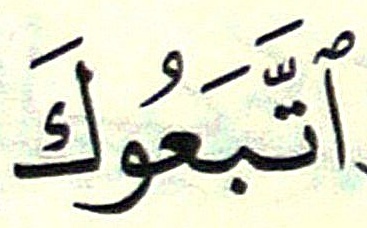 ٱتَّبَعُوكَ